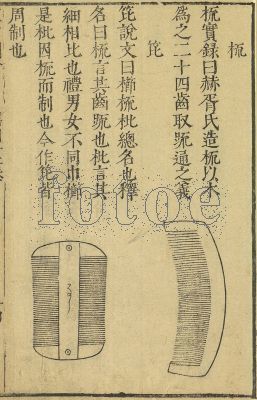 梳
梳實録曰赫胥氏造梳以木
為之二十四齒取踈通之義
笓
笓說文曰櫛梳枇總名也釋
名曰梳言其齒踈也枇言其
細相比也禮男女不同巾櫛
是枇因梳而制也今作笓皆
周制也
fotoe